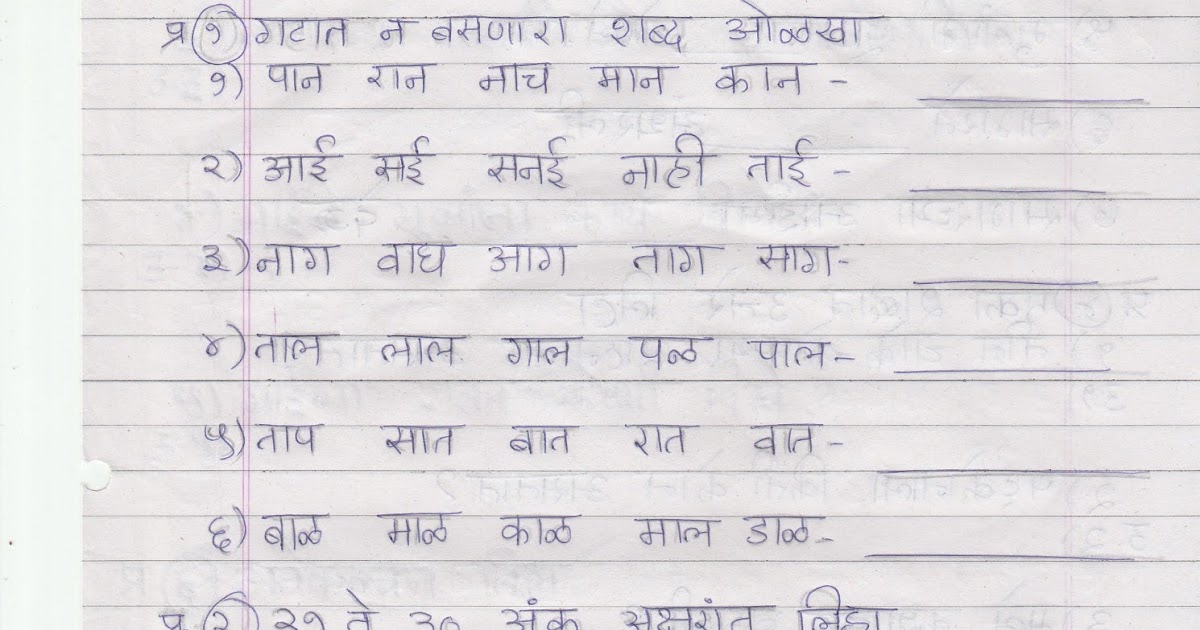 प्र १) गटात न बसणारा शब्द ओळखा
१) पान रान नाच मान कान -
२) आई सई सनई नाही ताई -
३) नाग वाघ आग ताग साग-
४) ताल लाल गाल पळ पाल-
५) ताप सात बात रात वात-
६) बाळ माळ काळ माल डाळ-
प्र २) २१ ते ३० अंक अक्षरांत लिहा